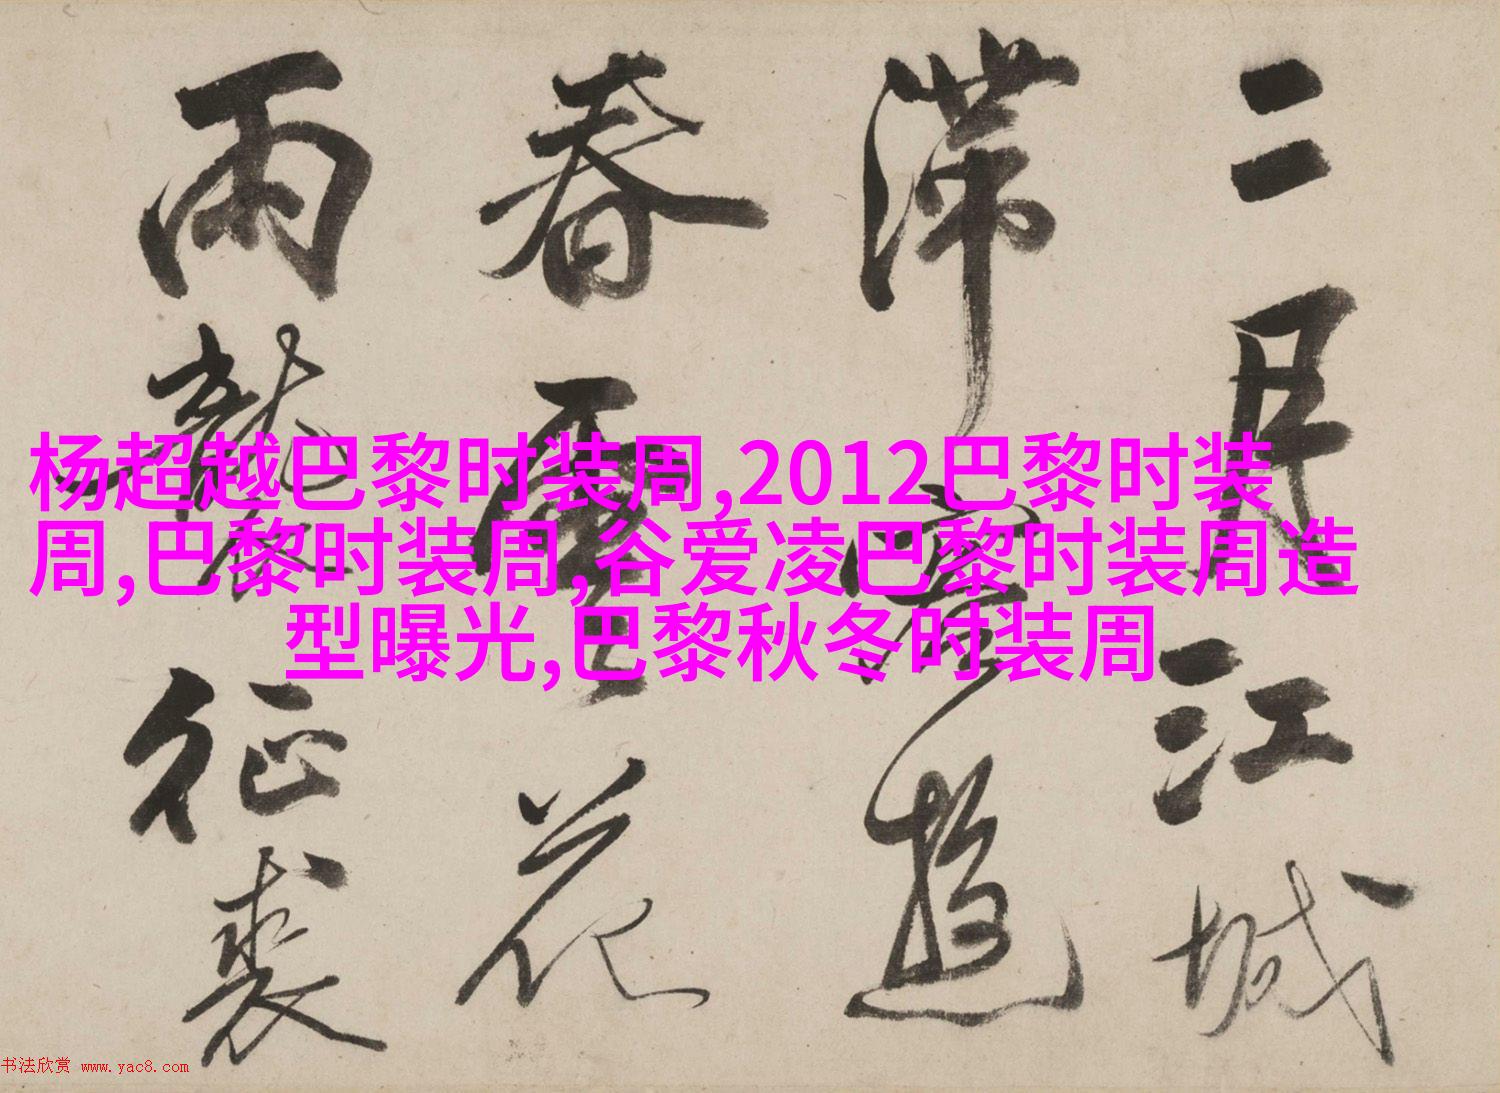 二月江城
滞客遊
春雲花
雨襲征裘
杨超越巴黎时装周,2012巴黎时装
周,巴黎时装周,谷爱凌巴黎时装周造
型曝光,巴黎秋冬时装周
书法欣赏 www.yac8.com